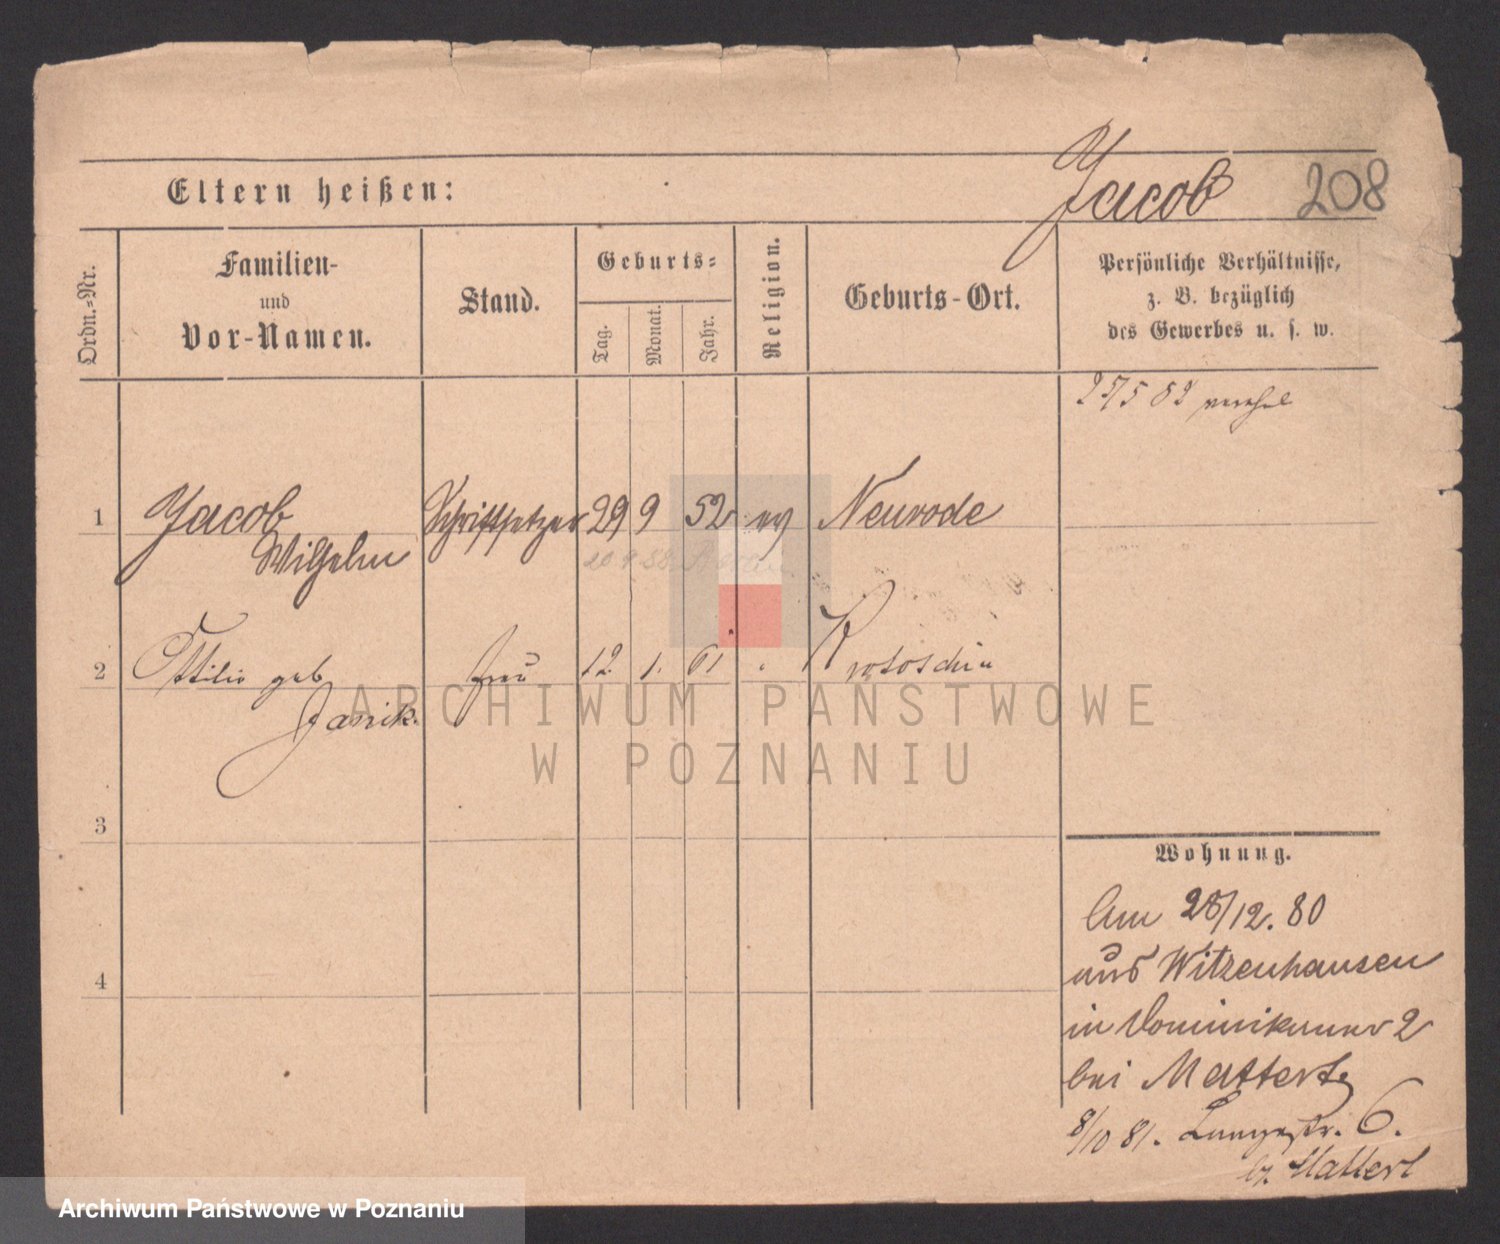 Jacob 208
Eltern heißen:
Ordn.-Nr.
Familien-
und
Vor-Namen.
Stand.
Geburts-
Tag.
Monat.
Jahr.
Religion.
Geburts-Ort.
Persönliche Verhältnisse,
z. B. bezüglich
des Gewerbes u. s. w.
27/5 82 vereh
1 Jacob Schriftsetzer 29 9 52 ev Neurode
Wilhelm
2 Ottilie geb Frau 12. 1. 61 Krotoschin
Janik.
3
4
Wohnung.
Am 28/12. 80
aus Witzenhausen
in Dominikaner 2
bei Mattert
8/10 81. Langestr. 6.
bei Mattert
ARCHIWUM PAŃSTWOWE
W POZNANIU
Archiwum Państwowe w Poznaniu